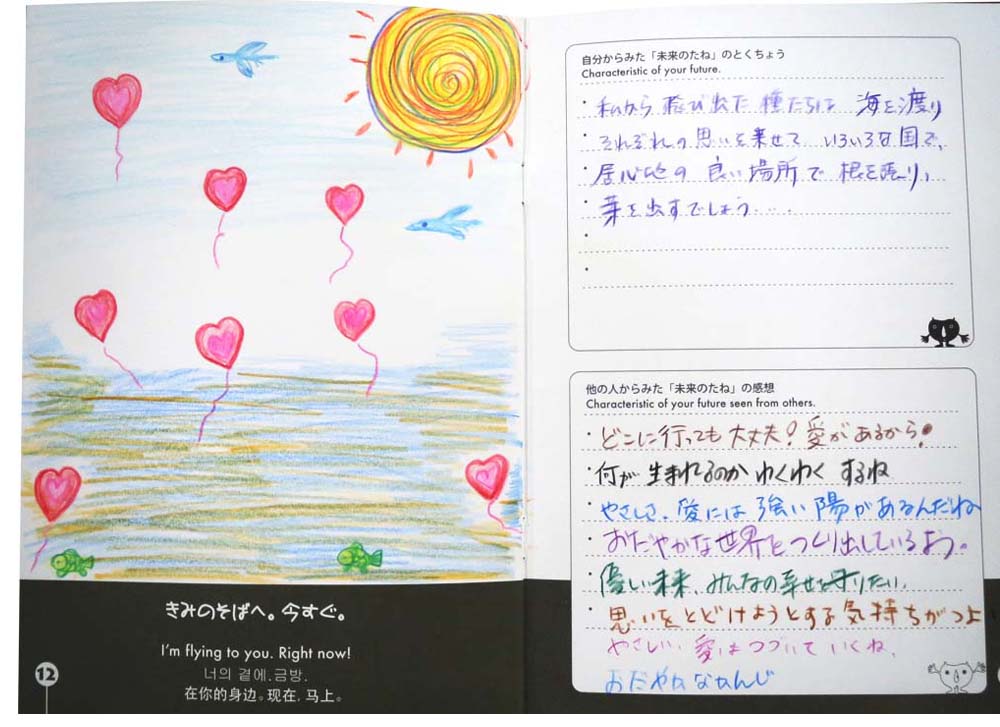 きみのそばへ。今すぐ。
I'm flying to you. Right now!
너의 곁에.금방.
在你的身边。现在, 马上。
12
自分からみた「未来のたね」のとくちょう
Characteristic of your future.
私から飛び出た種たちは 海を渡り
それぞれの思いを乗せて いろいろな国で、
居心地の良い場所で根を張り、
芽を出すでしょう・・・・
他の人からみた「未来のたね」の感想
Characteristic of your future seen from others.
どこに行っても大丈夫!愛があるから!
何が生まれるのかわくわくするね
やさしさ、愛には強い陽があるんだね
おだやかな世界をつくり出しているよう。
優しい未来、みんなの幸せを守りたい。
思いをとどけようとする気持ちがつよ
やさしい、愛はつづいていくね、
おだやかなかんじ